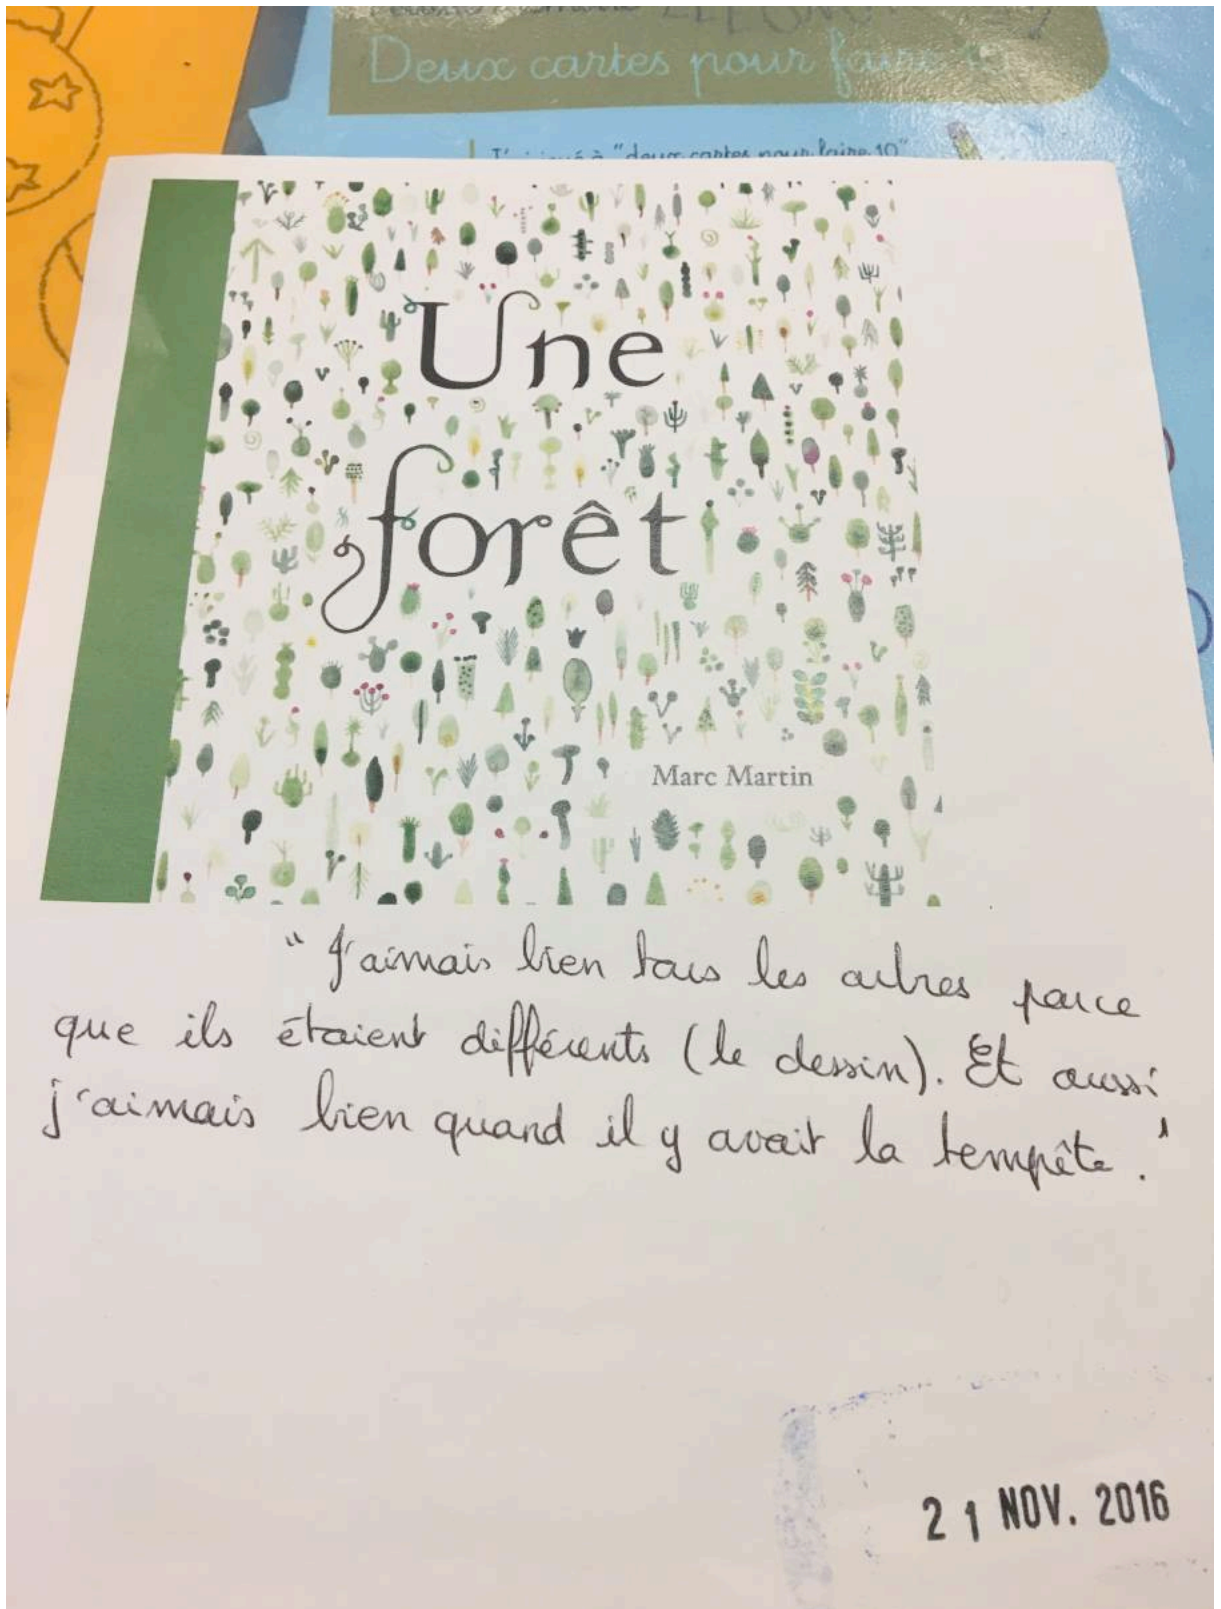 Deux cartes pour faire 10
"deux cartes pour faire 10"
Une
forêt
Marc Martin
" J'aimais bien tous les arbres parce
que ils étaient différents (le dessin). Et aussi
j'aimais bien quand il y avait la tempête. "
21 NOV. 2016